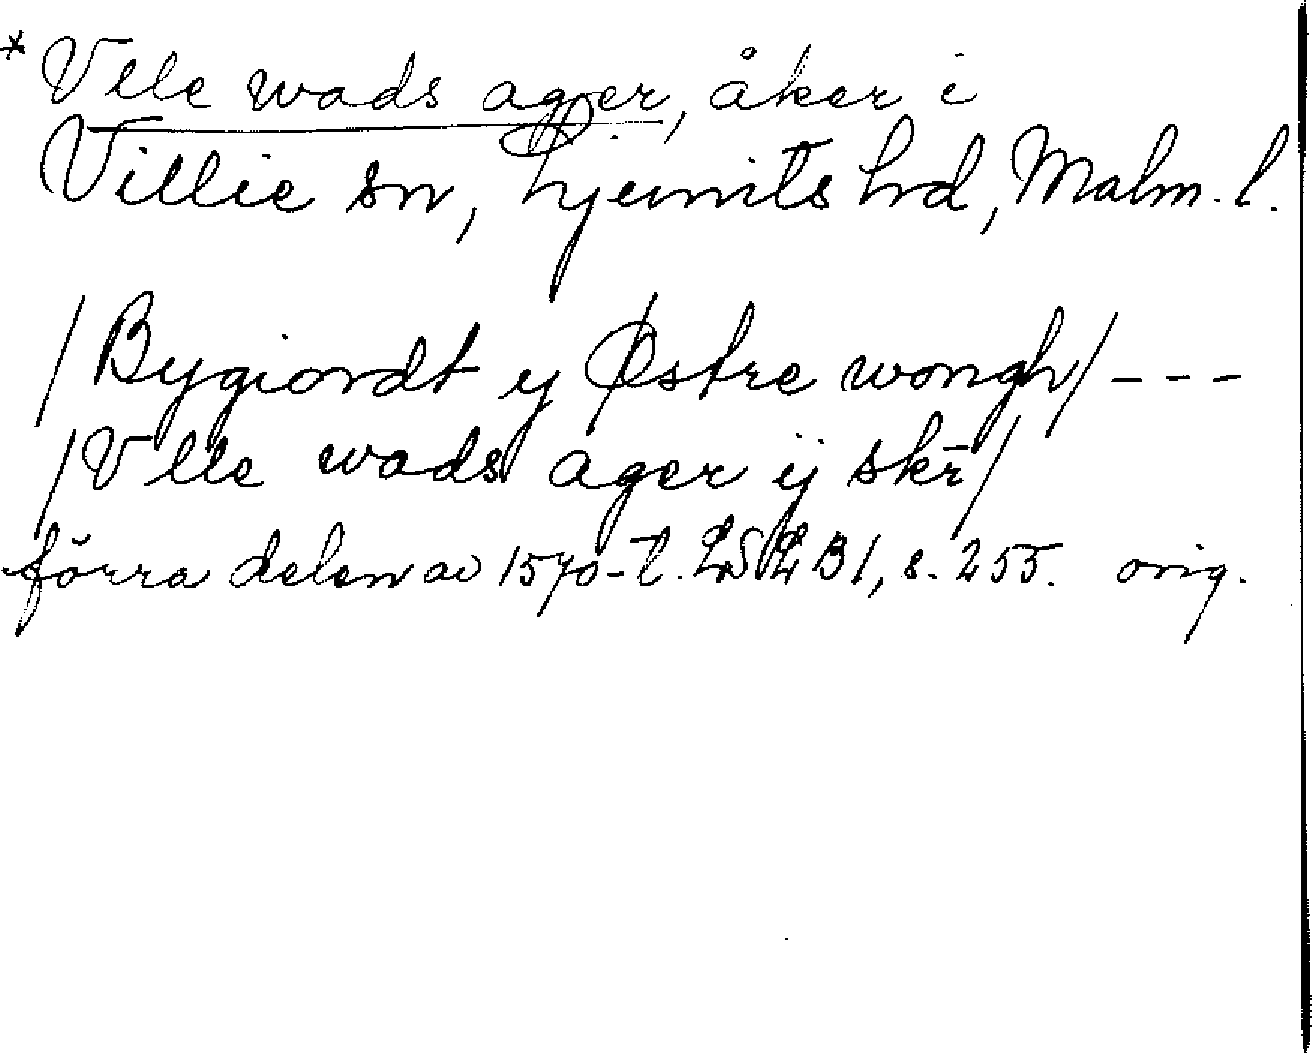 * Vlle wads ager, åker i
Villie sn, Ljunits hd, Malm. l.
/Bygiordt y Østre wongh/ - - -
/Vlle wads ager ij skr̄/
förra delen av 1570-t. LSLB1, s. 255. orig.